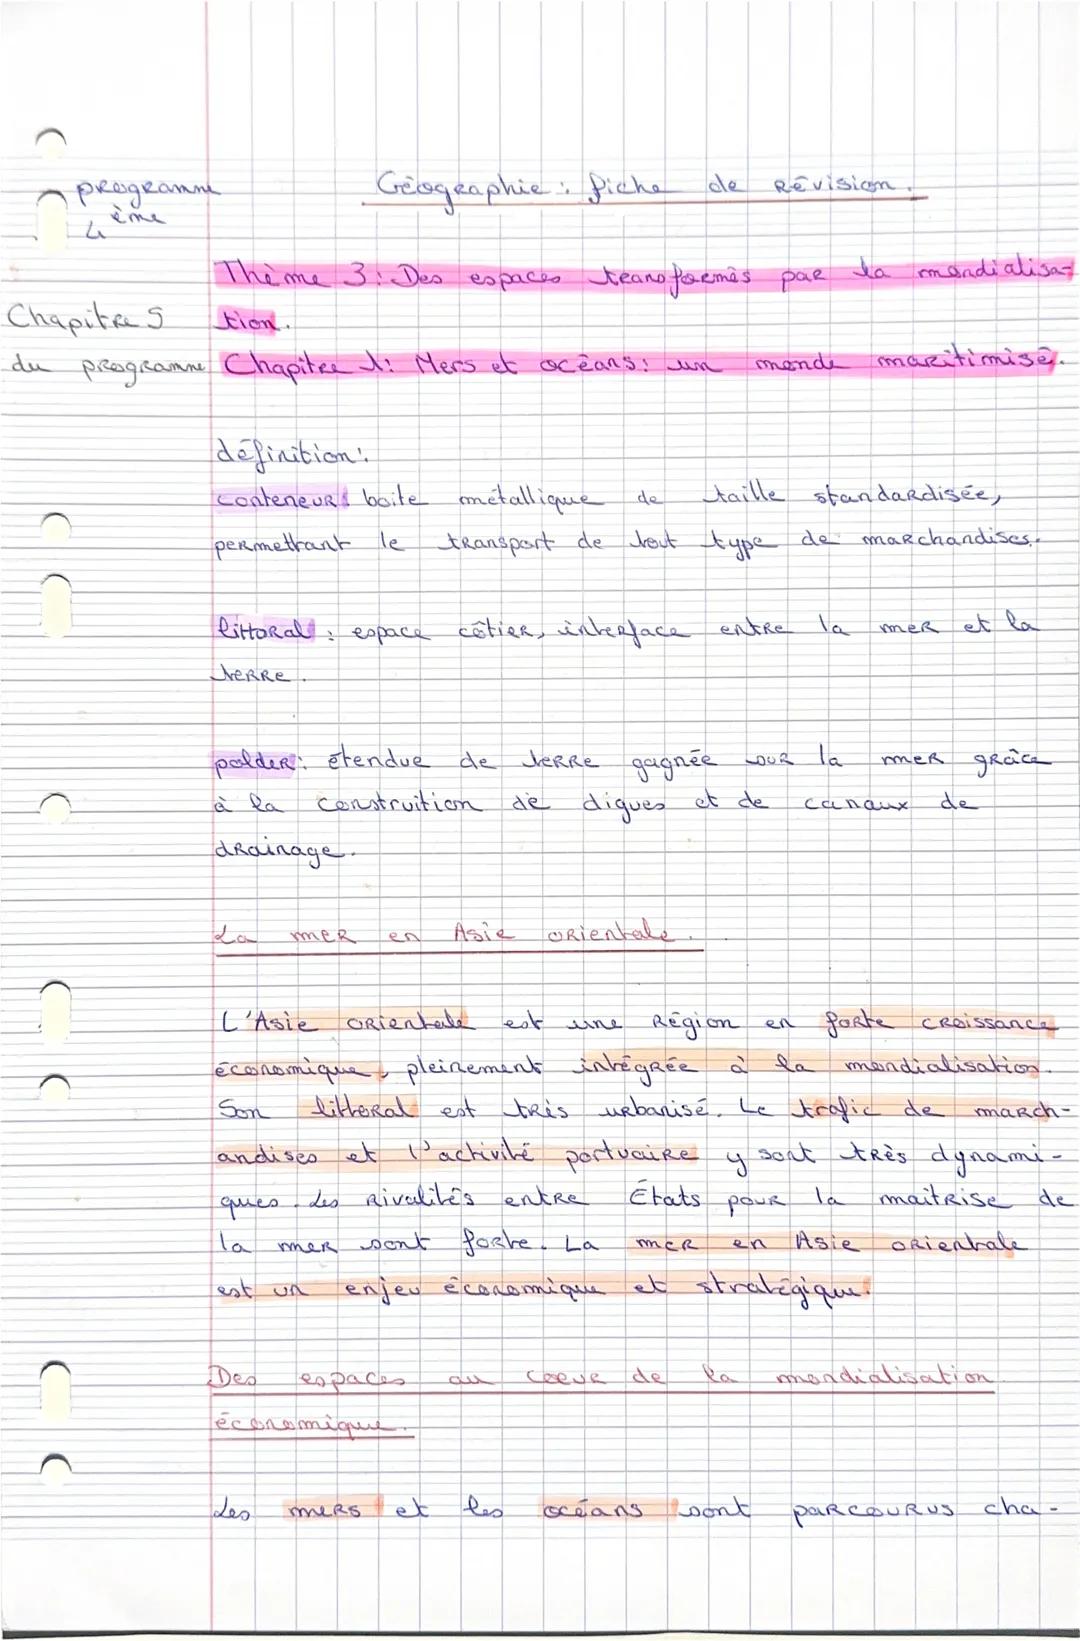 programme
4 ème
Géographie : fiche de Révision.
Thème 3 : Des espaces transformés par la mondialisa-
Chapitre 5
tion.
du programme
Chapitre 1: Mers et océans: un monde maritimisé.
définition:
conteneur: boite métallique de taille standardisée,
permettant le transport de tout type de marchandises.
littoral : espace côtier, interface entre la mer et la
terre.
polder: étendue de terre gagnée sur la mer grâce
à la construition de digues et de canaux de
drainage.
La mer en Asie orientale.
L'Asie orientale est une Région en forte croissance
économique, pleinement intégrée à la mondialisation.
Son littoral est très urbanisé. Le trafic de march-
andises et l'activité portuaire y sont très dynami-
ques. Les Rivalités entre États pour la maitrise de
la mer sont forte. La mer en Asie orientale
est un enjeu économique et stratégique.
Des espaces au coeur de la mondialisation
économique.
Les mers et les océans sont parcourus cha-